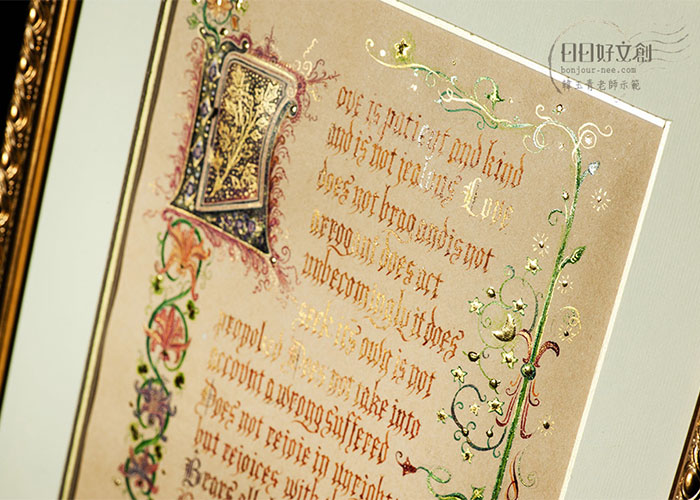 日日好文創
bonjour-nee.com
韓玉青老師示範
Love is patient and kind
and is not jealous Love
does not brag and is not
arrogant does act
unbecomingly it does
seek its own is not
account a wrong suffered
Does not rejoice in unright
but rejoices with
Bears all